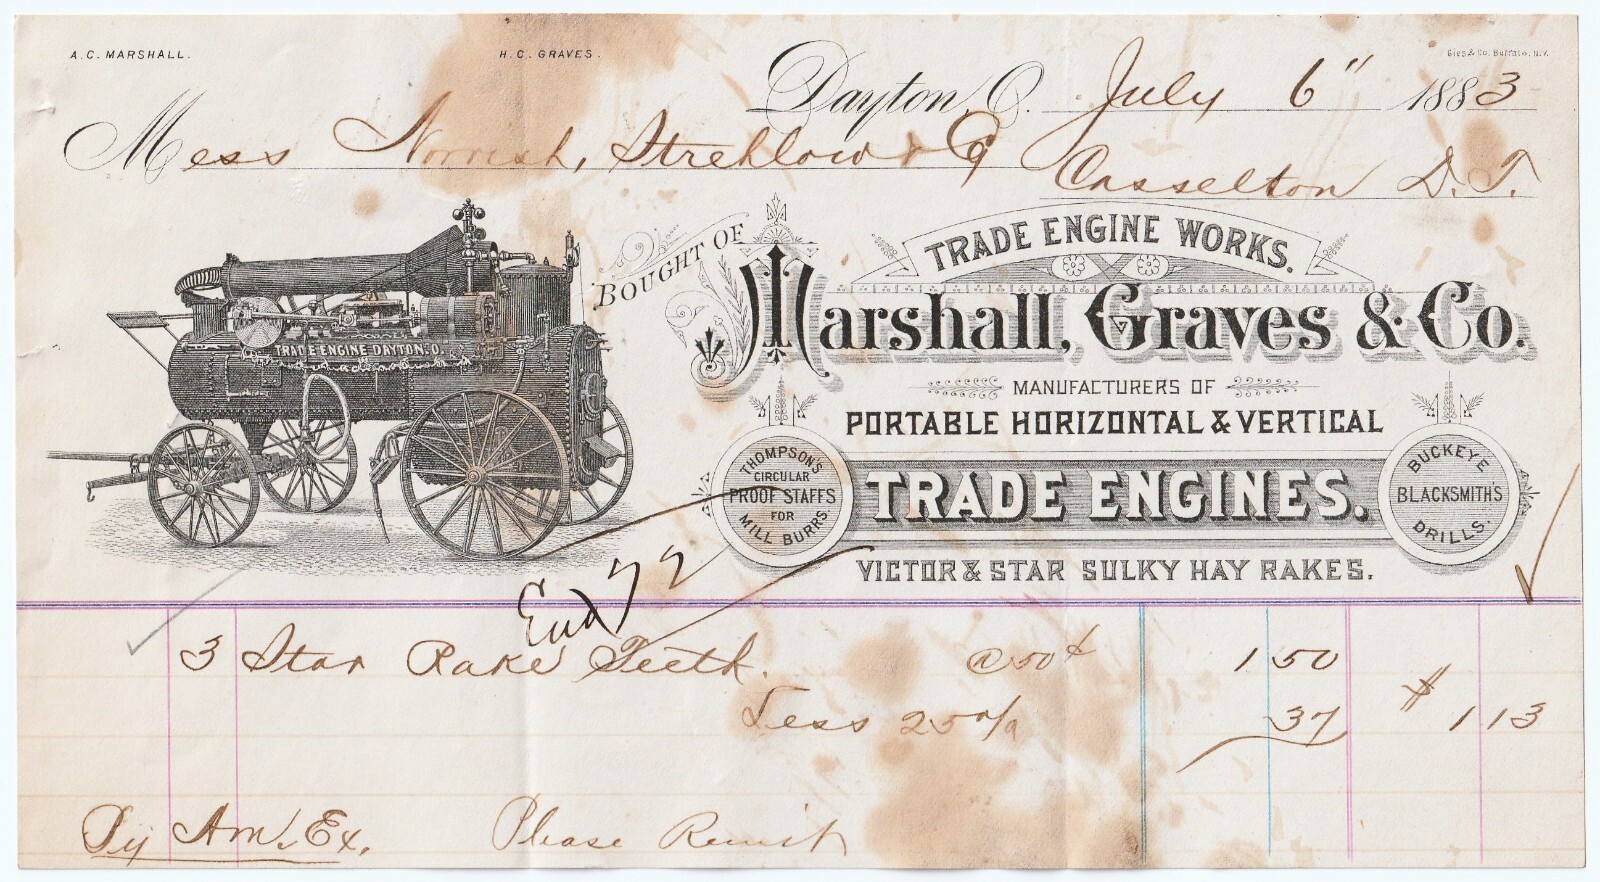 A. C. MARSHALL.
H. C. GRAVES.
Gies & Co. Buffalo, N.Y.
Dayton, O. July 6" 1883
Mess Norrish, Strehlow & Co
Casselton D.T.
BOUGHT OF
TRADE ENGINE WORKS.
Marshall, Graves & Co.
TRADE ENGINE DAYTON, O.
MANUFACTURERS OF
PORTABLE HORIZONTAL & VERTICAL
THOMPSON'S
CIRCULAR
PROOF STAFFS
FOR
MILL BURRS.
TRADE ENGINES.
BUCKEYE
BLACKSMITH'S
DRILLS.
VICTOR & STAR SULKY HAY RAKES.
3 Star Rake Teeth. @ 50¢ 1 50
Less 25 % 37 $ 1 13
By Am. Ex. Please Remit